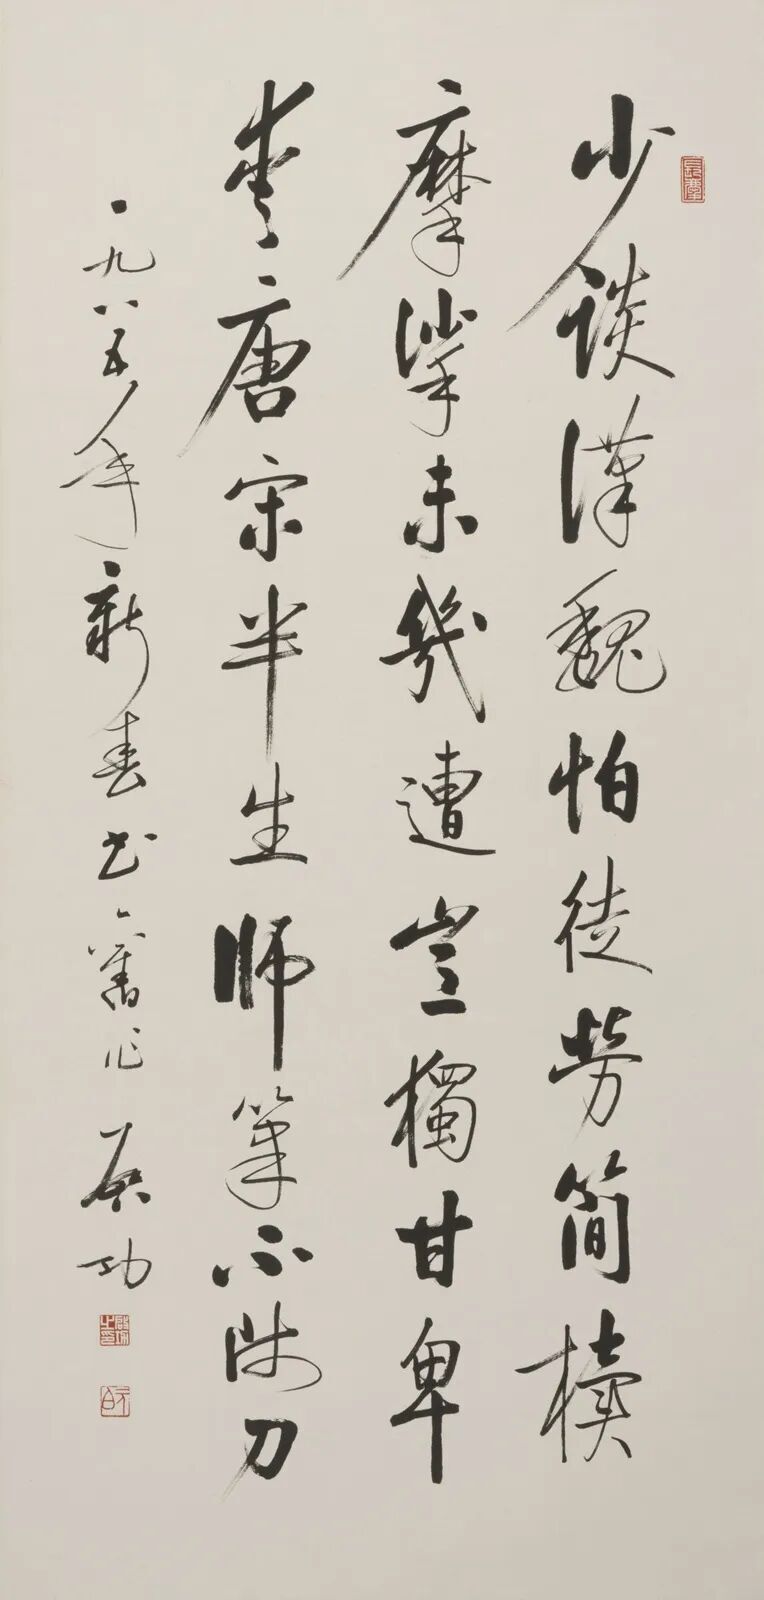 少談漢魏怕徒勞簡櫝
摩挲未幾遭豈獨甘卑
愛唐宋半生師筆不師刀
一九八五年新春書舊作啟功